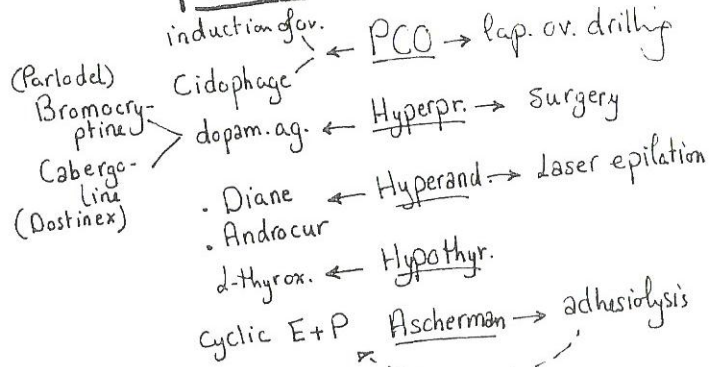 induction of ov.
Cidophage ← PCO → lap. ov. drilling
(Parlodel)
Bromocry-
ptine
Cabergo-
line
(Dostinex)
dopam. ag. ← Hyperpr. → Surgery
. Diane ← Hyperand. → Laser epilation
. Androcur
L-thyrox. ← Hypothyr.
Cyclic E+P Ascherman → adhesiolysis